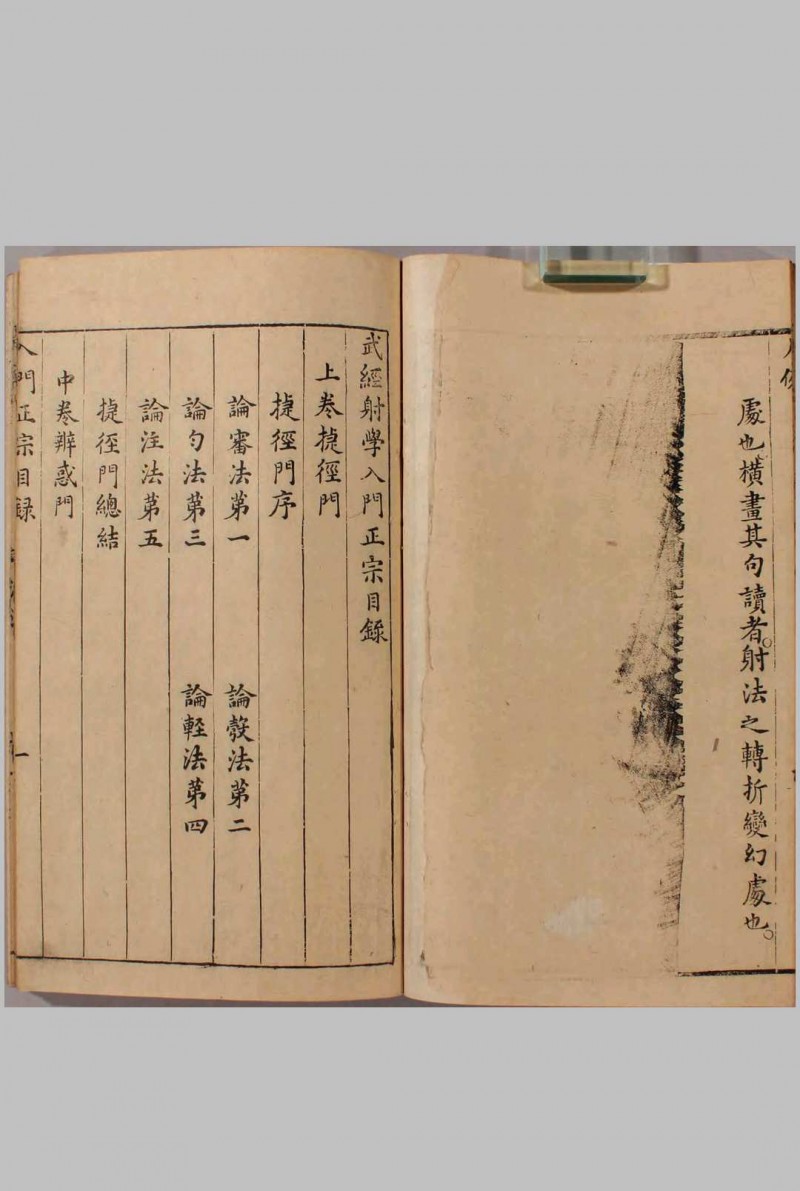 處也橫畫其句讀者射法之轉折變幻處也
武經射學入門正宗目錄
上卷捷徑門
捷徑門序
論審法第一 論彀法第二
論勻法第三 論輕法第四
論注法第五
捷徑門總結
中卷辨惑門
入門正宗目錄 一